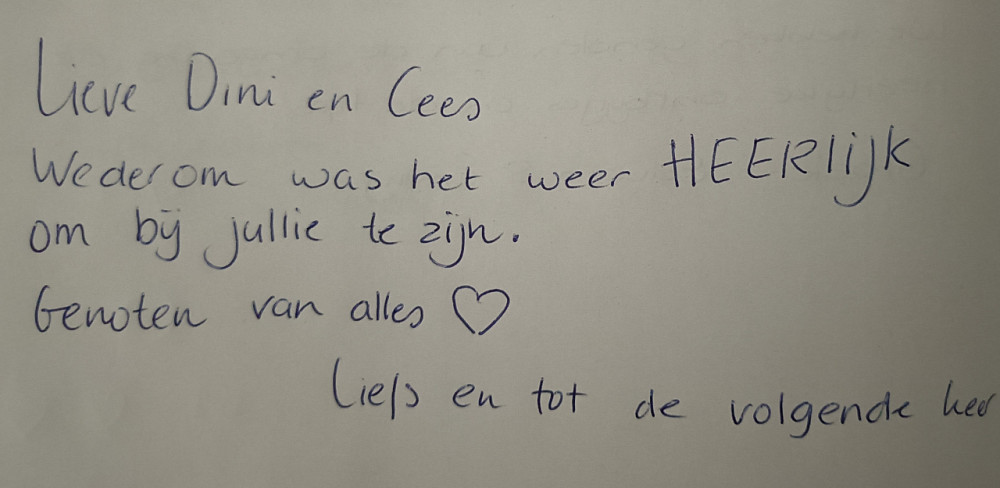 Lieve Dini en Cees
Wederom was het weer HEERlijk
om bij jullie te zijn.
Genoten van alles ♡
Liefs en tot de volgende keer